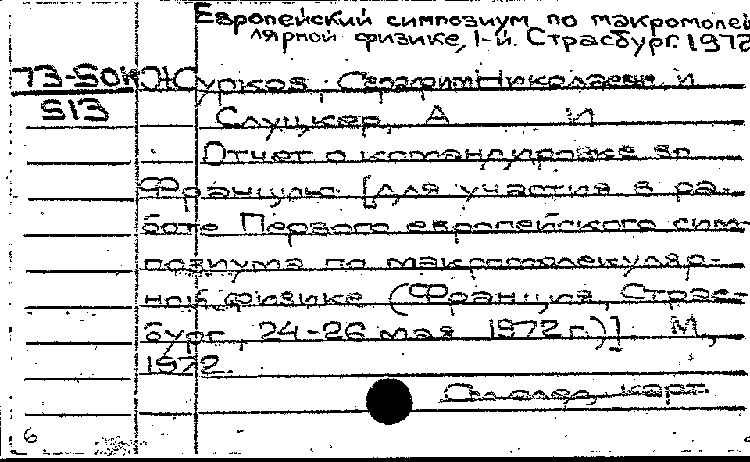 Европейский симпозиум по макромоле
лярной физике, 1-й. Страсбург. 1972
Журков, Серафим Николаевич и
513
Слуцкер, А И
Отчет о командировке во
Францию [для участия в ра-
боте Первого европейского сим-
позиума по макромолекуляр-
ной физике (Франция, Страс-
бург, 24-26 мая 1972 г.)] М,
1972.
6